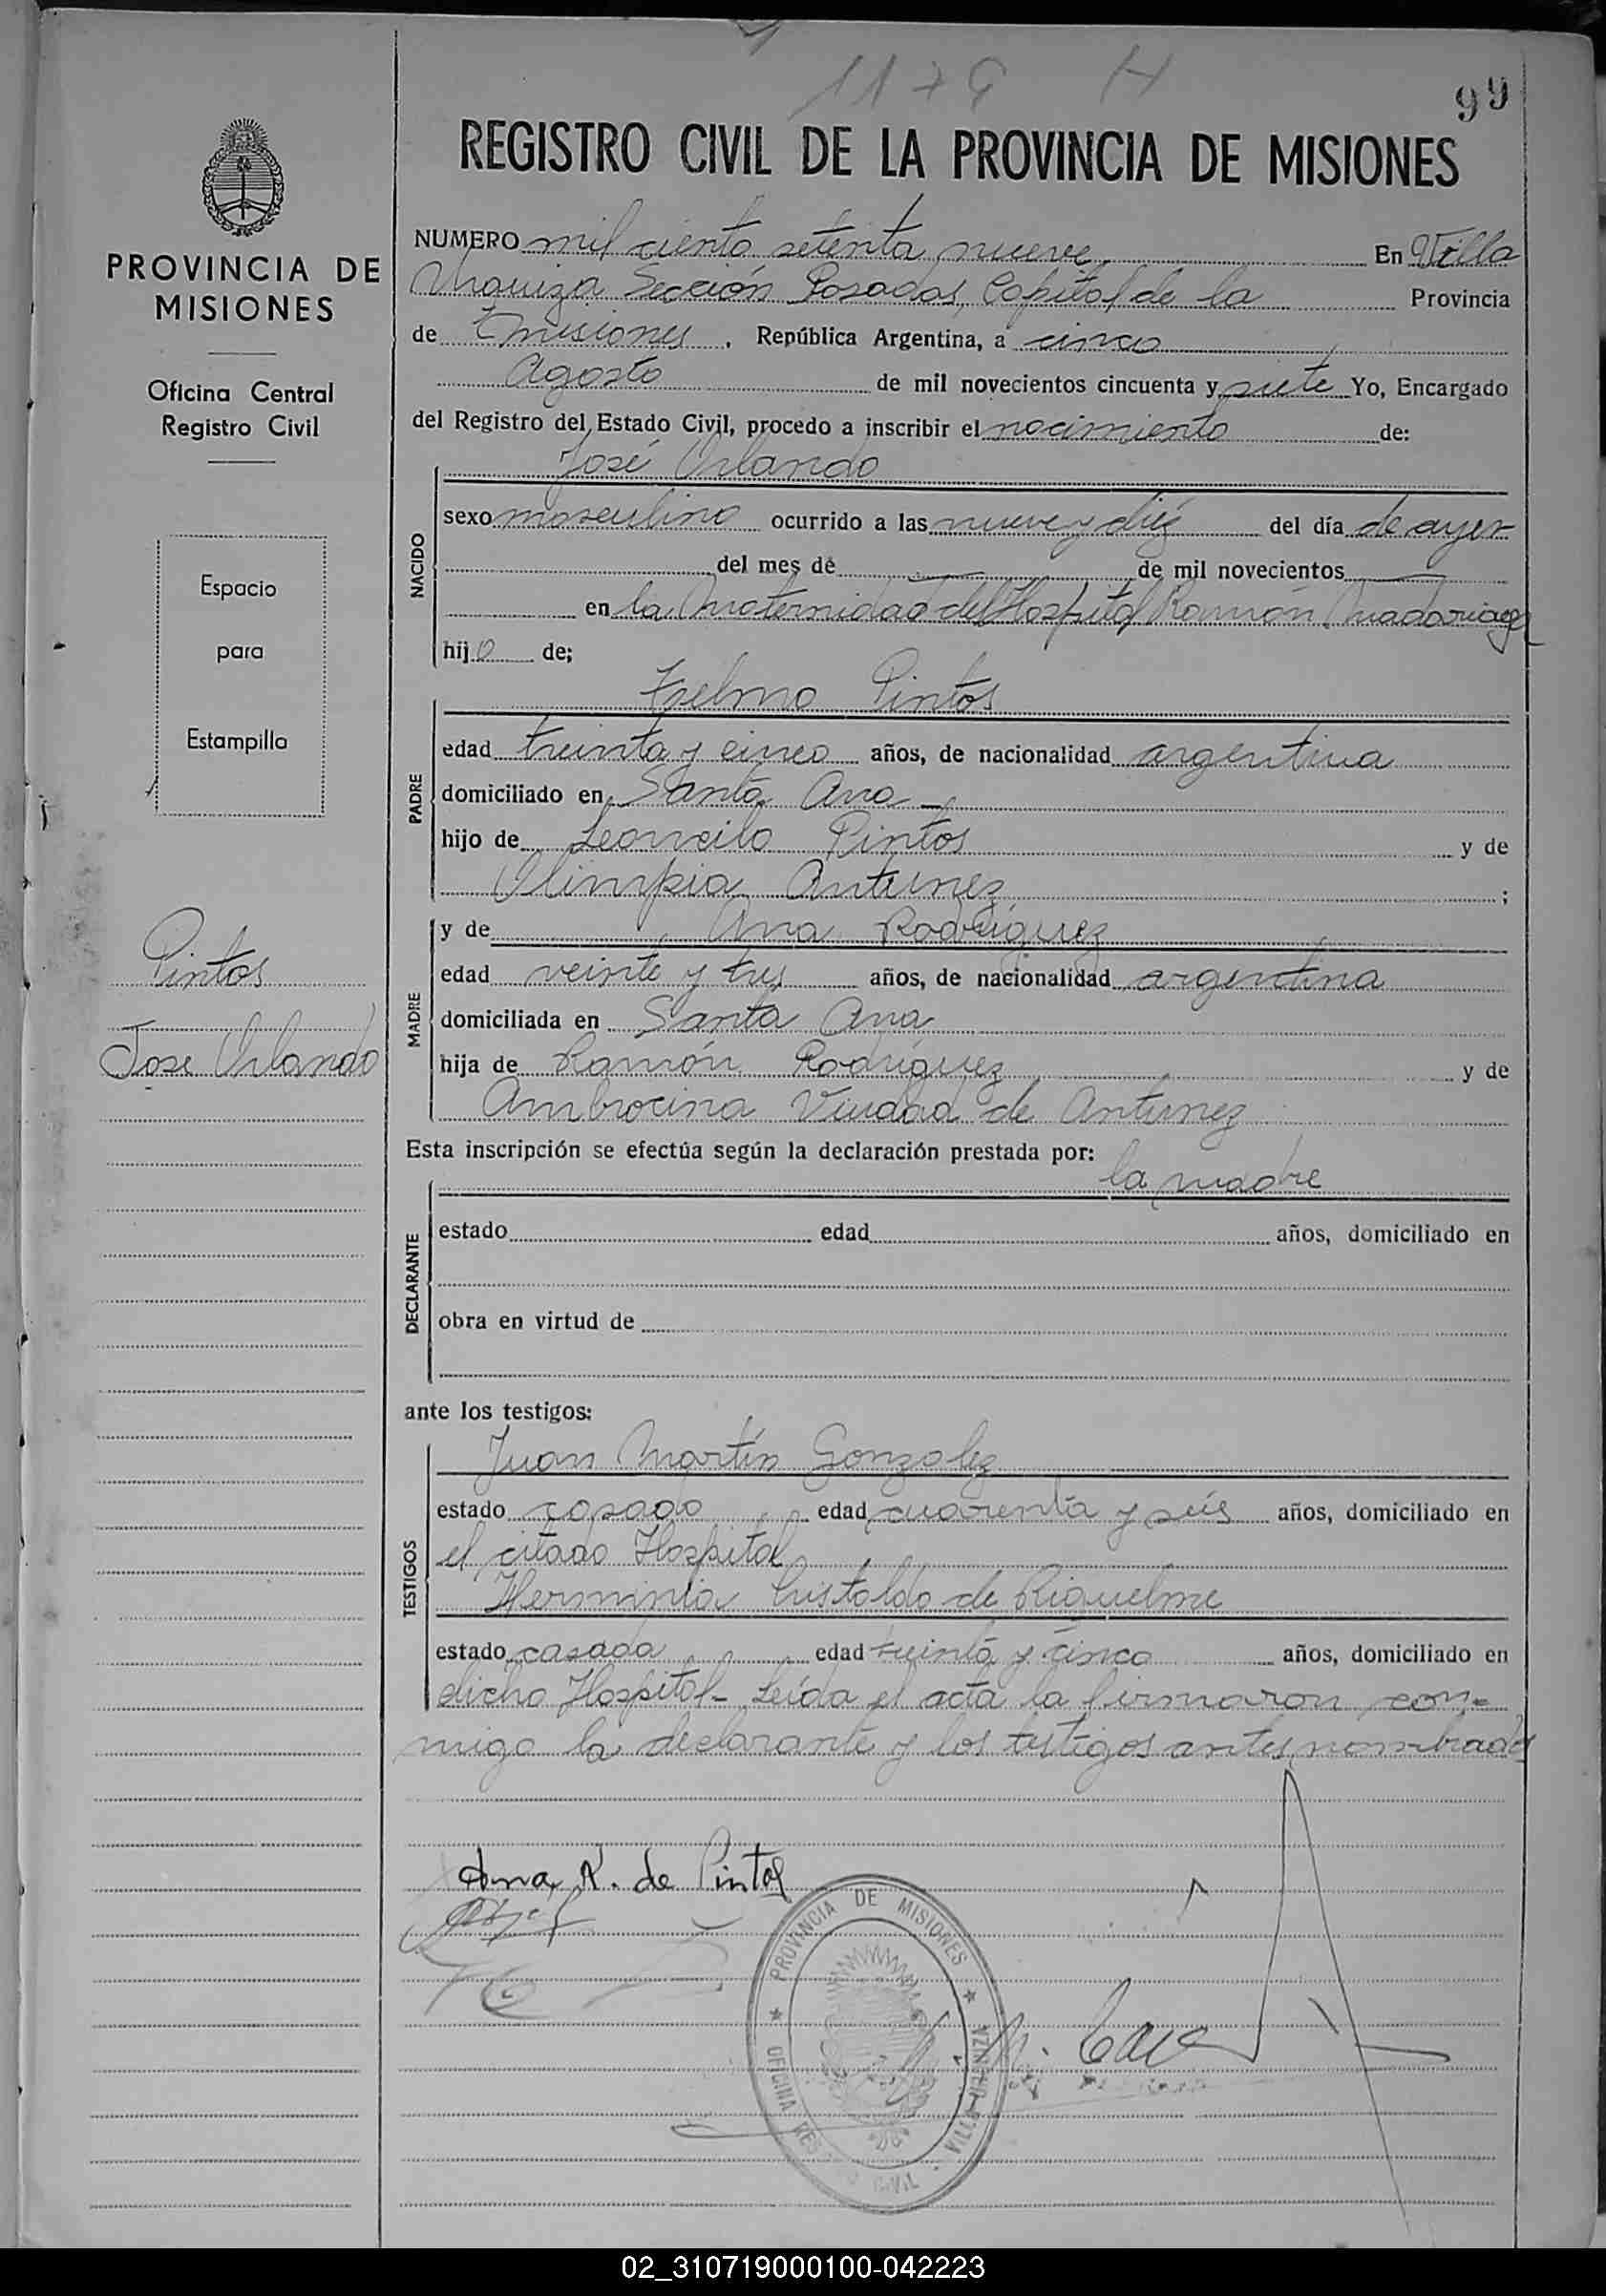 1179 H
99
PROVINCIA DE
MISIONES
Oficina Central
Registro Civil
Espacio
para
Estampilla
Pintos
Jose Orlando
REGISTRO CIVIL DE LA PROVINCIA DE MISIONES
NUMERO mil ciento setenta nueve En Villa
Urquiza Sección Posadas, Capital de la Provincia
de Misiones, República Argentina, a cinco
Agosto de mil novecientos cincuenta y siete Yo, Encargado
del Registro del Estado Civil, procedo a inscribir el nacimiento de:
José Orlando
NACIDO
sexo masculino ocurrido a las nueve y diéz del día de ayer
del mes de de mil novecientos
en la Maternidad del Hospital Ramón Madariaga
hijo de;
Telmo Pintos
PADRE
edad treinta y cinco años, de nacionalidad argentina
domiciliado en Santa Ana
hijo de Leoncilo Pintos y de
Olimpia Antunez ;
MADRE
y de Ana Rodríguez
edad veinte y tres años, de nacionalidad argentina
domiciliada en Santa Ana
hija de Ramón Rodríguez y de
Ambrocina Viudad de Antunez
Esta inscripción se efectúa según la declaración prestada por:
la madre
DECLARANTE
estado edad años, domiciliado en
obra en virtud de
ante los testigos:
Juan Martín Gonzalez
TESTIGOS
estado casado edad cuarenta y seis años, domiciliado en
el citado Hospital
Herminia Cristaldo de Riquelme
estado casada edad treinta y cinco años, domiciliado en
dicho Hospital- Leída el acta la firmaron con=
migo la declarante y los testigos antes nombrados
Ana R. de Pintos
PROVINCIA DE MISIONES
OFICINA REGISTRO CIVIL - VILLA URQUIZA
02_310719000100-042223